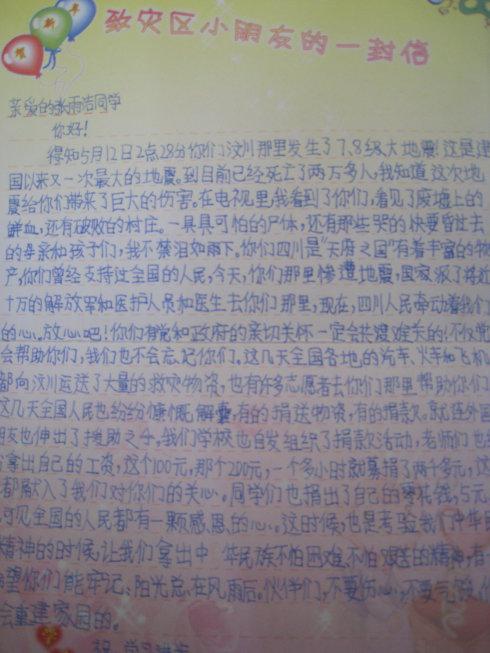 致灾区小朋友的一封信
亲爱的张雨洁同学
你好!
得知5月12日2点28分你们汶川那里发生了7.8级大地震!这是建
国以来又一次最大的地震。到目前已经死亡了两万多人,我知道这次地
震给你们带来了巨大的伤害。在电视里,我看到了你们,看见了废墟上的
鲜血,还有破败的村庄。一具具可怕的尸体,还有那些哭的快要昏过去
的母亲和孩子们,我不禁泪如雨下。你们四川是“天府之国”有着丰富的物
产,你们曾经支持过全国的人民,今天,你们那里惨遭地震,国家派了将近
十万的解放军和医护人员和医生去你们那里,现在,四川人民牵动着我们
的心。放心吧!你们有党和政府的亲切关怀一定会共渡难关的!不仅党
会帮助你们,我们也不会忘记你们。这几天全国各地的汽车、火车和飞机
都向汶川运送了大量的救灾物资,也有许多志愿者去你们那里帮助你们
这几天全国人民也纷纷慷慨解囊,有的捐送物资,有的捐款。就连外国
朋友也伸出了援助之手。我们学校也自发组织了捐款活动,老师们也
拿出自己的工资,这个100元,那个200元,一个多小时就募捐了两千多元,这
都献入了我们对你们的关心。同学们也捐出了自己的零花钱,5元
可见全国的人民都有一颗感恩的心。这时候,也是考验我们中华
精神的时候,让我们拿出中华民族不怕困难、不怕艰苦的精神,有
望你们能牢记:阳光总在风雨后。伙伴们,不要伤心,不要气馁,
会重建家园的。
祝 学习进步